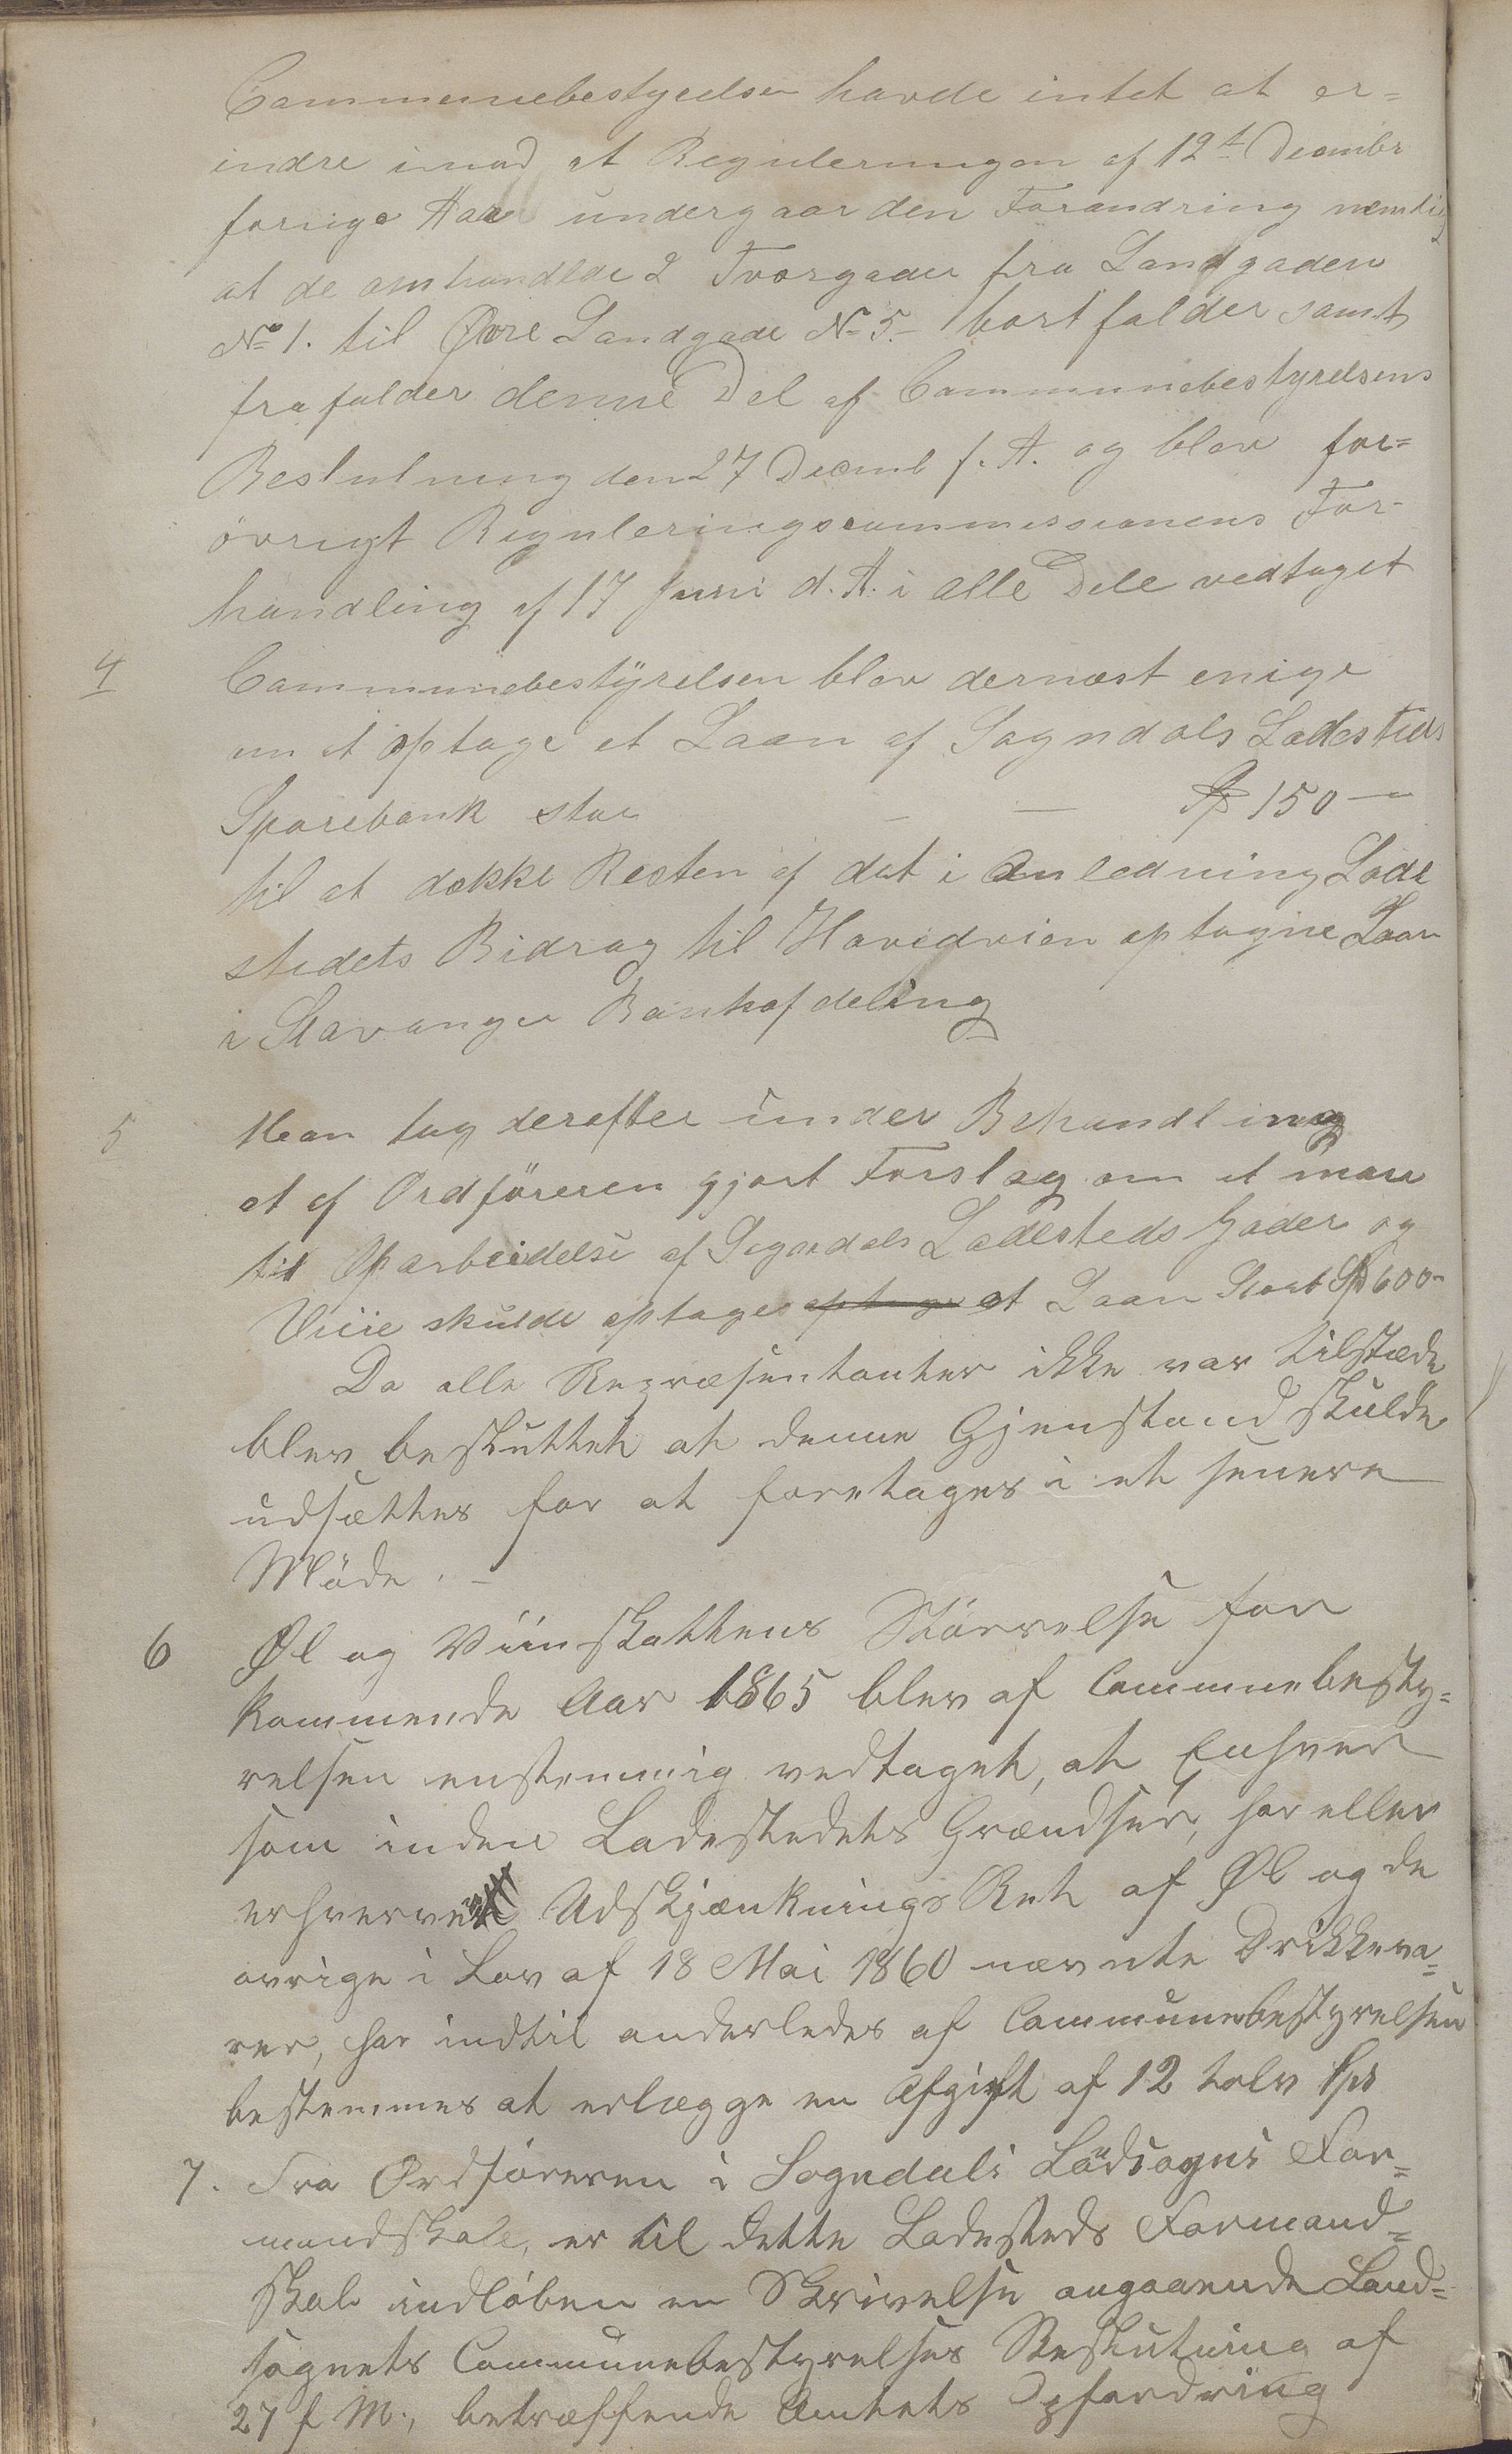 Communebestyrelsen havde intet at er=
indre imod at Reguleringen af 12t Decembr
forrige Aar undergaar den Forandring nemlig
at de omhandlede 2 Tvergader fra Landgaden
No 1. til Øvre Landgade No 5. bortfalder samt
frafalder denne Del af Communebestyrelsens
Beslutning den 27 Decemb f. A. og blev for=
övrigt Reguleringscommissionens For-
handling af 17 Juni d. A. i alle Dele vedtaget
4 Communebestÿrelsen blev dernæst enige
om at optage et Laan af Sogndals Ladesteds
Sparebank stor — — Sp 150 —
til at dække Resten af det i Anledning Lade
stedets Bidrag til Hovedveien optagne Laan
i Stavanger Bankafdeling
5 Man tog derefter under Behandling
et af Ordföreren gjort Forslag om at man
til Oparbeidelse af Sogndals Ladesteds Gader og
Veie skulde optages optage et Laan Stort Sp 600-
Da alle Repræsentanter ikke var tilstæde
blev besluttet at denne Gjenstand skulde
udsættes for at foretages i et senere
Møde. -
6 Øl og Viinskattens Störrelse for
kommende Aar 1865 blev af Communebesty=
relsen enstemmig vedtaget, at Enhver
som inden Ladestedets Grændser, har eller
erhverver Udskjænknings Ret af Øl og de
øvrige i Lov af 18 Mai 1860 nævnte Drikkeva=
rer, har indtil anderledes af Communebestyrelsen
bestemmes at erlægge en Afgift af 12 tolv Spd
7. Fra Ordföreren i Sogndals Landsogns For=
mandskab, er til dette Ladesteds Formand=
skab indløben en Skrivelse angaaende Land=
sognets Communebestyrelses Beslutning af
27 f M., betræffende Amtets Opfordring